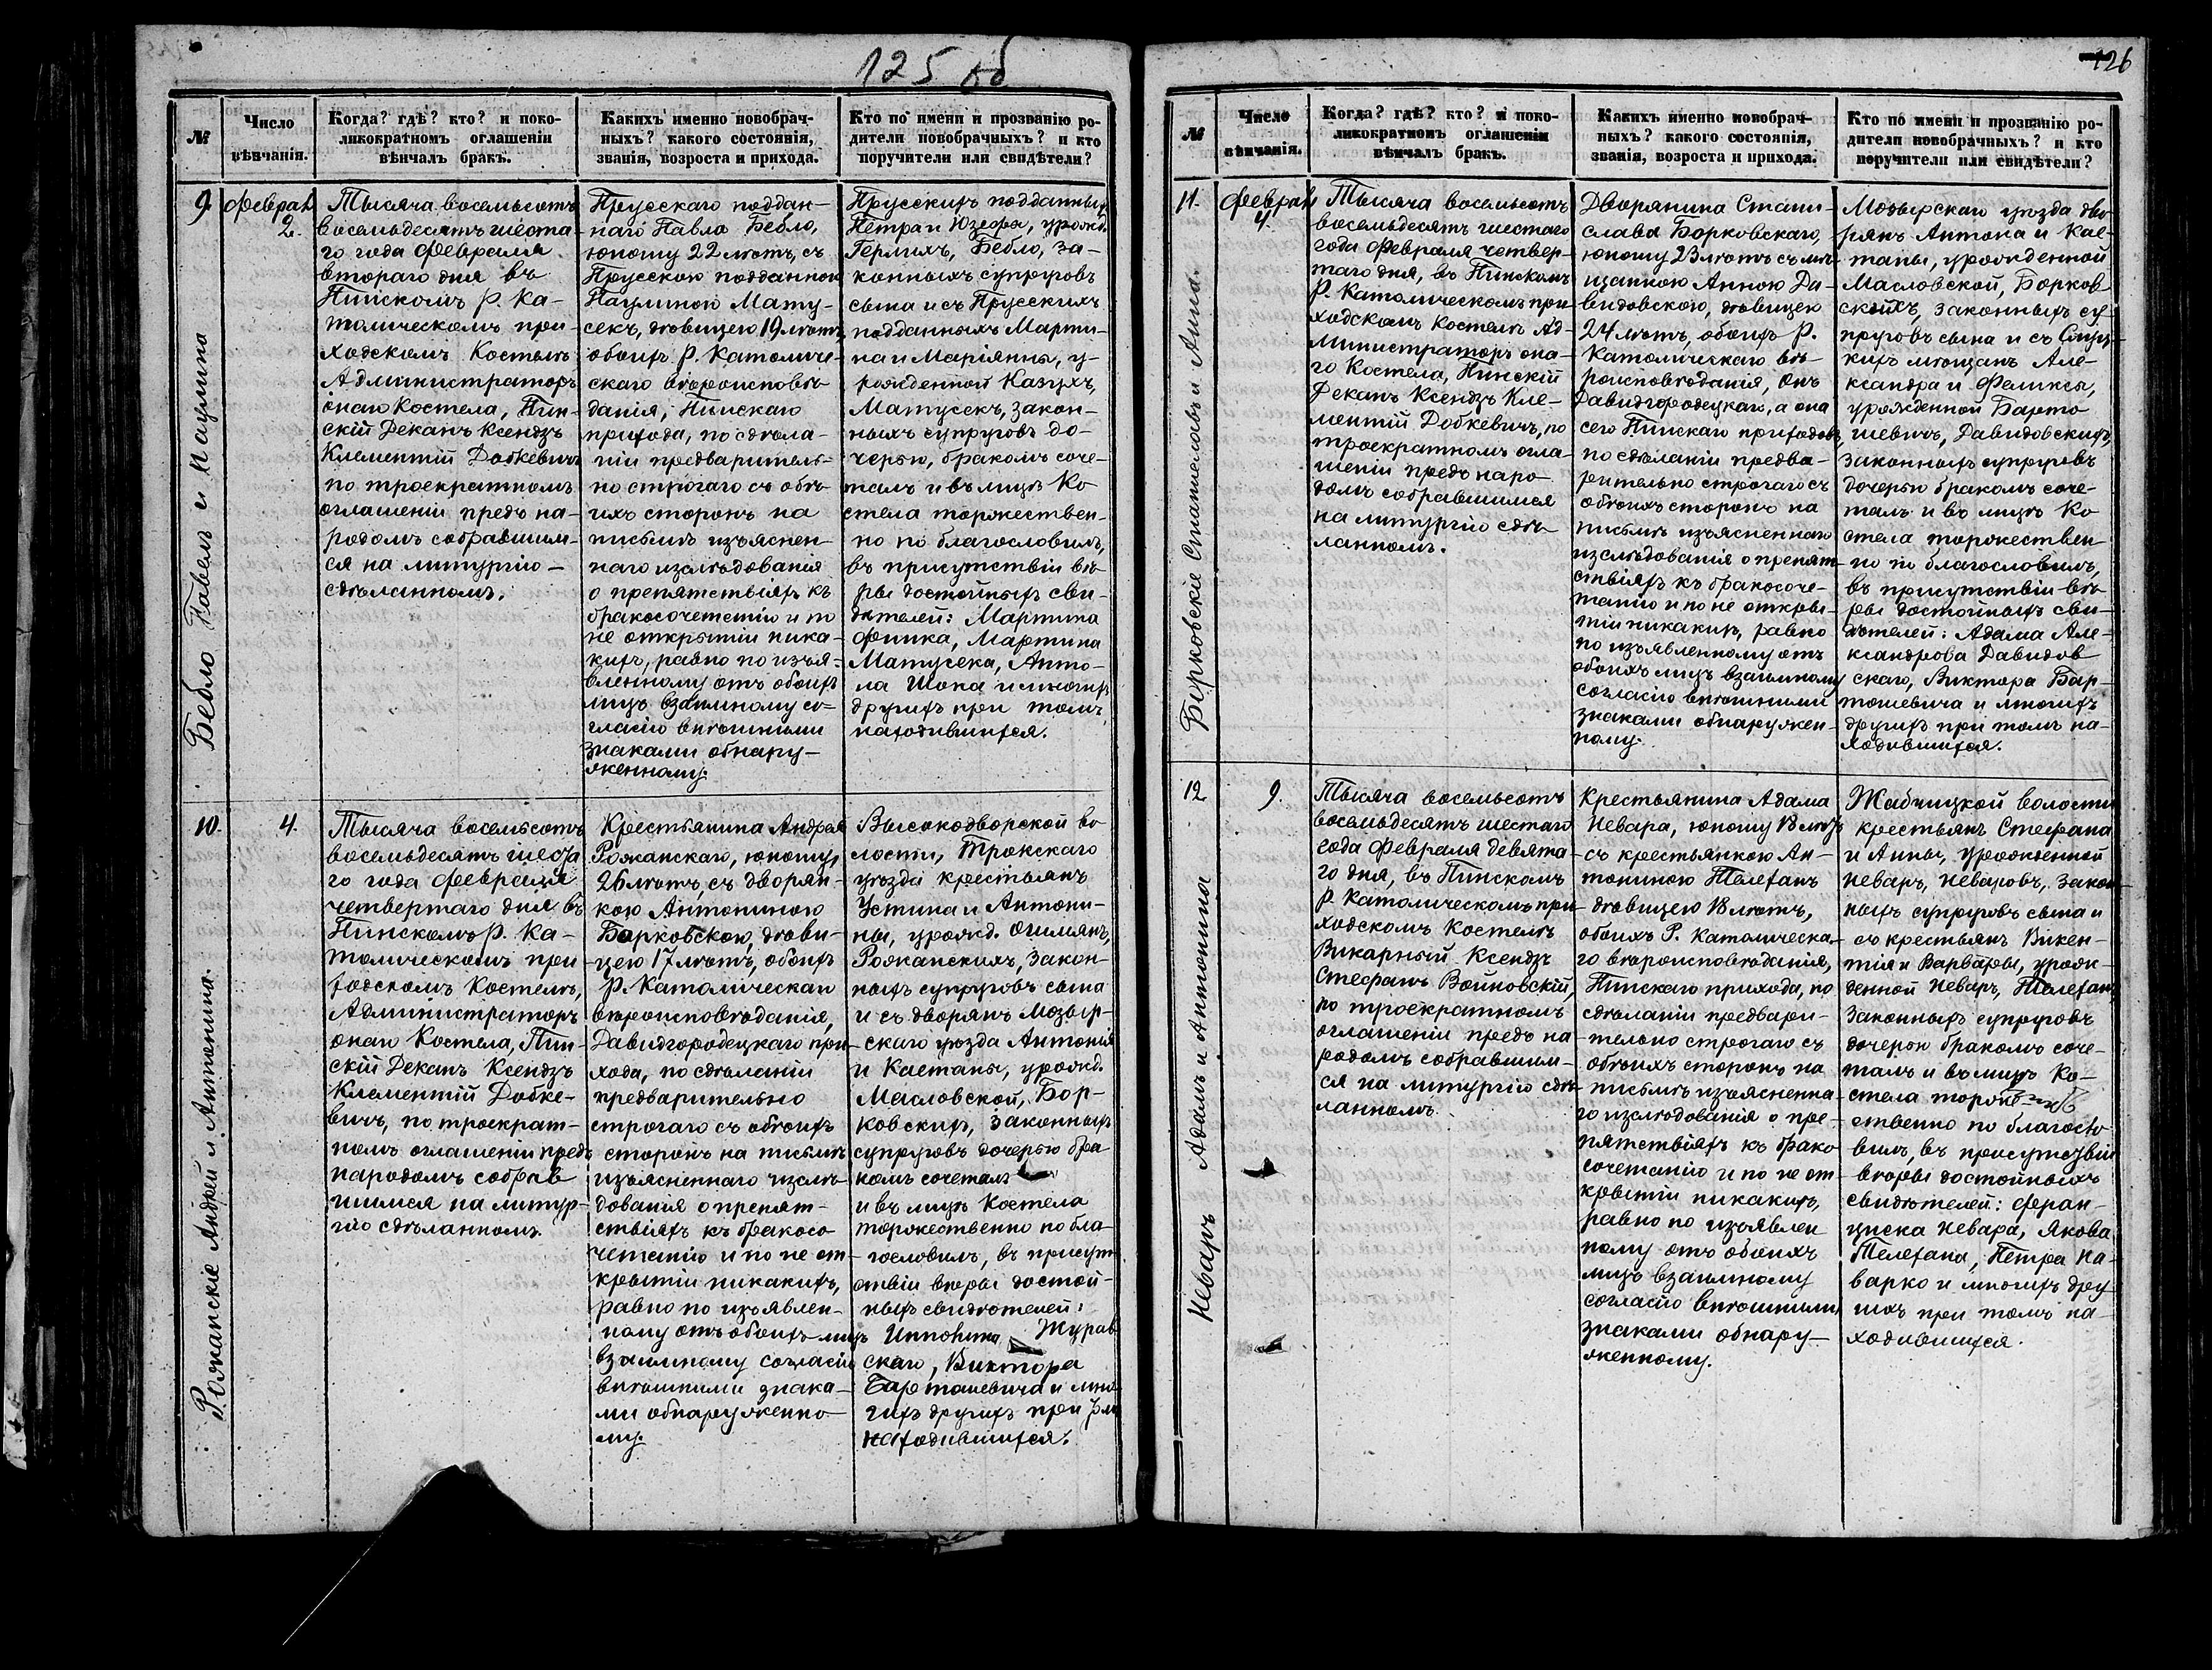 125 об
№
Число
вѣнчанія.
Когда? гдѣ? кто? и поко-
ликократномъ оглашеніи
вѣнчалъ бракъ.
Какихъ именно новобрач-
ныхъ? какого состоянія,
званія, возроста и прихода.
Кто по имени и прозванію ро-
дители новобрачныхъ? и кто
поручители или свидѣтели?
9.
Бебло Павелъ и Паулина
Феврал
2.
Тысяча восемьсотъ
восемьдесятъ шеста-
го года Февраля
втораго дня въ
Пинскомъ Р. Ка-
толическомъ при-
ходскомъ Костелѣ
Администраторъ
онаго Костела, Пин-
скій Деканъ Ксендзъ
Клементій Добкевичъ
по троекратномъ
оглашеніи предъ на-
родомъ собравшим-
ся на литургію —
сдѣланномъ.
Прусскаго поддан-
наго Павла Бебло,
юношу 22 лѣтъ, съ
Прусскою подданною
Паулиною Мату-
секъ, дѣвицею 19 лѣтъ,
обоихъ Р. Католиче-
скаго вѣроисповѣ-
данія, Пинскаго
прихода, по сдѣла-
ніи предваритель-
но строгаго съ обѣ-
ихъ сторонъ на
письмѣ изъяснен-
наго изслѣдованія
о препятствіяхъ къ
бракосочетанію и по
не открытіи ника-
кихъ, равно по изъя-
вленному отъ обоихъ
лицъ взаимному со-
гласію внѣшними
знаками обнару-
женному.
Прусскихъ подданныхъ
Петра и Юзефы, урожд.
Гермихъ, Бебло, за-
конныхъ супруговъ
сына и съ Прусскихъ
подданныхъ Марти-
на и Маріянны, у-
рожденной Казухъ,
Матусекъ, закон-
ныхъ супруговъ до-
черью, бракомъ соче-
талъ и въ лицѣ Ко
стела торжествен-
но по благословилъ,
въ присутствіи вѣ-
ры достойныхъ сви-
дѣтелей: Мартина
Финка, Мартина
Матусека, Анто-
на Шока и многихъ
другихъ при томъ
находившихся.
10.
Рожанскіе Андрей и Антонина.
4.
Тысяча восемьсотъ
восемьдесятъ шеста
го года Февраля
четвертаго дня въ
Пинскомъ Р. Ка-
толическомъ при
ходскомъ Костелѣ,
Администраторъ
онаго Костела, Пин-
скій Деканъ Ксендзъ
Клементій Добке-
вичъ, по троекрат-
номъ оглашеніи предъ
народомъ собрав
шимся на литур-
гію сдѣланномъ.
Крестьянина Андрея
Рожанскаго, юношу,
26 лѣтъ, съ дворян-
кою Антониною
Барковскою, дѣви-
цею 17 лѣтъ, обоихъ
Р. Католическаго
вѣроисповѣданія,
Давидгородецкаго при-
хода, по сдѣланіи
предварительно
строгаго съ обѣихъ
сторонъ на письмѣ
изъясненнаго изслѣ-
дованія о препят-
ствіяхъ къ бракосо
четанію и по не от-
крытіи никакихъ,
равно по изъявлен-
ному отъ обоихъ лицъ
взаимному согласію
внѣшними знака-
ми обнаруженно-
му.
Высокодворской во
лости, Трокскаго
уѣзда крестьянъ
Устина и Антони-
ны, урожд. Огилянъ,
Рожанскихъ, закон-
ныхъ супруговъ сына
и съ дворянъ Мозыр-
скаго уѣзда Антонія
и Каетаны, урожд.
Масловской, Бор-
ковскихъ, законныхъ
супруговъ дочерью бра
комъ сочеталъ
и въ лицѣ Костела
торжественно по бла-
гословилъ, въ присут-
ствіи вѣры достой-
ныхъ свидѣтелей:
Журав
скаго, Виктора
Бартошевича и мно-
гихъ другихъ при томъ
находившихся.
126
№
Число
вѣнчанія.
Когда? гдѣ? кто? и поко-
ликократномъ оглашеніи
вѣнчалъ бракъ.
Какихъ именно новобрач-
ныхъ? какого состоянія,
званія, возроста и прихода.
Кто по имени и прозванію ро-
дители новобрачныхъ? и кто
поручители или свидѣтели?
11.
Берковскіе Станиславъ и Анна.
Феврал
4.
Тысяча восемьсотъ
восемьдесятъ шестаго
года Февраля четвер-
таго дня, въ Пинскомъ
Р. Католическомъ при-
ходскомъ Костелѣ Ад-
министраторъ она-
го Костела, Пинскій
Деканъ Ксендзъ Кле-
ментій Добкевичъ, по
троекратномъ огла-
шеніи предъ наро
домъ собравшимся
на литургію сдѣ-
ланномъ.
Дворянина Стани-
слава Борковскаго,
юношу 23 лѣтъ съ мѣ-
щанкою Анною Да-
видовскою, дѣвицею
24 лѣтъ, обоихъ Р.
Католическаго вѣ-
роисповѣданія, онъ
Давидгородецкаго, а она
сего Пинскаго приходовъ,
по сдѣланіи предва-
рительно строгаго съ
обѣихъ сторонъ на
письмѣ изъясненнаго
изслѣдованія о препят-
ствіяхъ къ бракосоче-
танію и по не откры-
тіи никакихъ, равно
по изъявленному отъ
обоихъ лицъ взаимному
согласію внѣшними
знаками обнаружен-
ному.
Мозырскаго уѣзда дво-
рянъ Антона и Кае-
таны, урожденной
Масловской, Борков-
скихъ, законныхъ су-
пруговъ сына и съ
мѣщанъ Але-
ксандра и Феликсы,
урожденной Барто
шевичъ, Давидовскихъ,
законныхъ супруговъ
дочерью бракомъ соче-
талъ и въ лицѣ Ко-
стела торжествен-
но по благословилъ,
въ присутствіи вѣ-
ры достойныхъ сви-
дѣтелей: Адама Але-
ксандрова Давидов
скаго, Виктора Бар-
тошевича и многихъ
другихъ при томъ на-
ходившихся.
12
Неваръ Адамъ и Антонина
9.
Тысяча восемьсотъ
восемьдесятъ шестаго
года Февраля девята-
го дня, въ Пинскомъ
Р. Католическомъ при-
ходскомъ Костелѣ
Викарный Ксендзъ
Стефанъ Войновскій,
по троекратномъ
оглашеніи предъ на
родомъ собравшим-
ся на литургію сдѣ-
ланномъ.
Крестьянина Адама
Невара, юношу 18 лѣтъ
съ крестьянкою Ан-
тониною Телеханъ
дѣвицею 18 лѣтъ,
обоихъ Р. Католическа-
го вѣроисповѣданія,
Пинскаго прихода, по
сдѣланіи предвари-
тельно строгаго съ
обѣихъ сторонъ на
письмѣ изъясненна-
го изслѣдованія о пре-
пятствіяхъ къ брако
сочетанію и по не от
крытіи никакихъ,
равно по изъявлен
ному отъ обоихъ
лицъ взаимному
согласію внѣшними
знаками обнару-
женному.
Жабчицкой волости
крестьянъ Стефана
и Анны, урожденной
Неваръ, Неваровъ, закон-
ныхъ супруговъ сына и
съ крестьянъ Викен-
тія и Варвары, урож-
денной Неваръ, Телеханъ
законныхъ супруговъ
дочерью бракомъ соче-
талъ и въ лицѣ Ко-
стела торже-
ственно по благосло
вилъ, въ присутствіи
вѣры достойныхъ
свидѣтелей: Фран-
циска Невара, Якова
Телехана, Петра На-
варко и многихъ дру
гихъ при томъ на-
ходившихся.